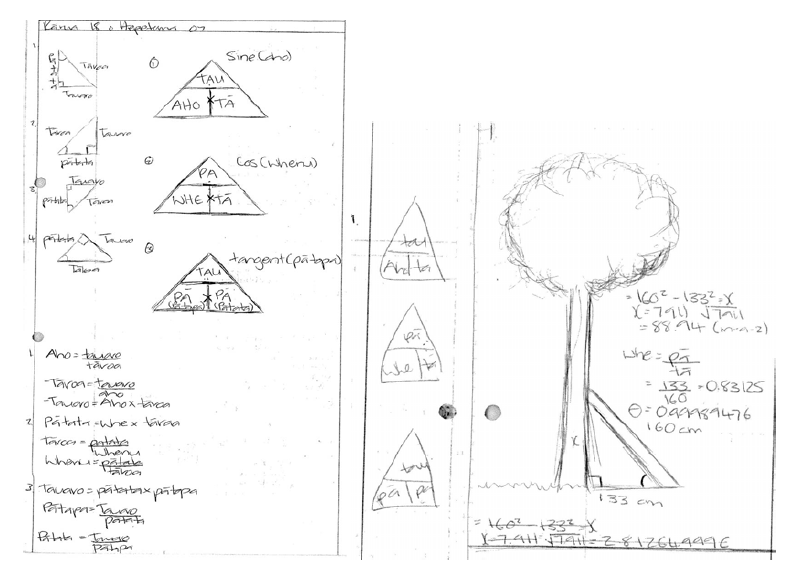 Karua 18
1.
Tāroa
Tauaro
2.
Tāroa
Tauaro
pātata
3.
Tauaro
pātata
Tāroa
4.
pātata
Tauaro
Tāroa
① Sine (aho)
TAU
AHO × TĀ
② Cos (Whenu)
PĀ
WHE × TĀ
③ tangent (pātapa)
TAU
PĀ × PĀ
(Pātapa) (Pātata)
1. Aho = tauaro
tāroa
Tāroa = tauaro
aho
Tauaro = Aho x tāroa
2. Pātata = whe x tāroa
Tāroa = pātata
whenu
Whenu = pātata
tāroa
3. Tauaro = pātata x pātapa
Pātapa = Tauaro
pātata
Pātata = Tauaro
Pātapa
1.
tau
Aho ta
pā
whe tā
tau
pā pā
= 160² - 133² = X
X = 7911 √7911
= 88.94 (m-a-2)
whe = pā
tā
= 133 = 0.83125
160
160 cm
x
133 cm
= 160² - 133² = X
X = 7.911 √7911 = 2.812649996